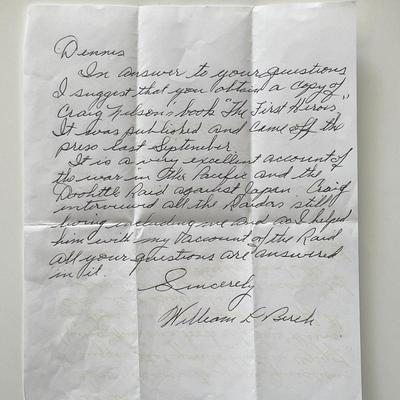 Dennis
In answer to your questions
I suggest that you obtain a copy of
Craig Nelson's book "The First Heroes"
It was published and came off the
press last September.
It is a very excellent account of
the war in the Pacific and the
Doolittle Raid against Japan. Craig
interviewed all the Raiders still
living including me and as I helped
him with my account of the Raid
all your questions are answered
in it.
Sincerely
William L Birch